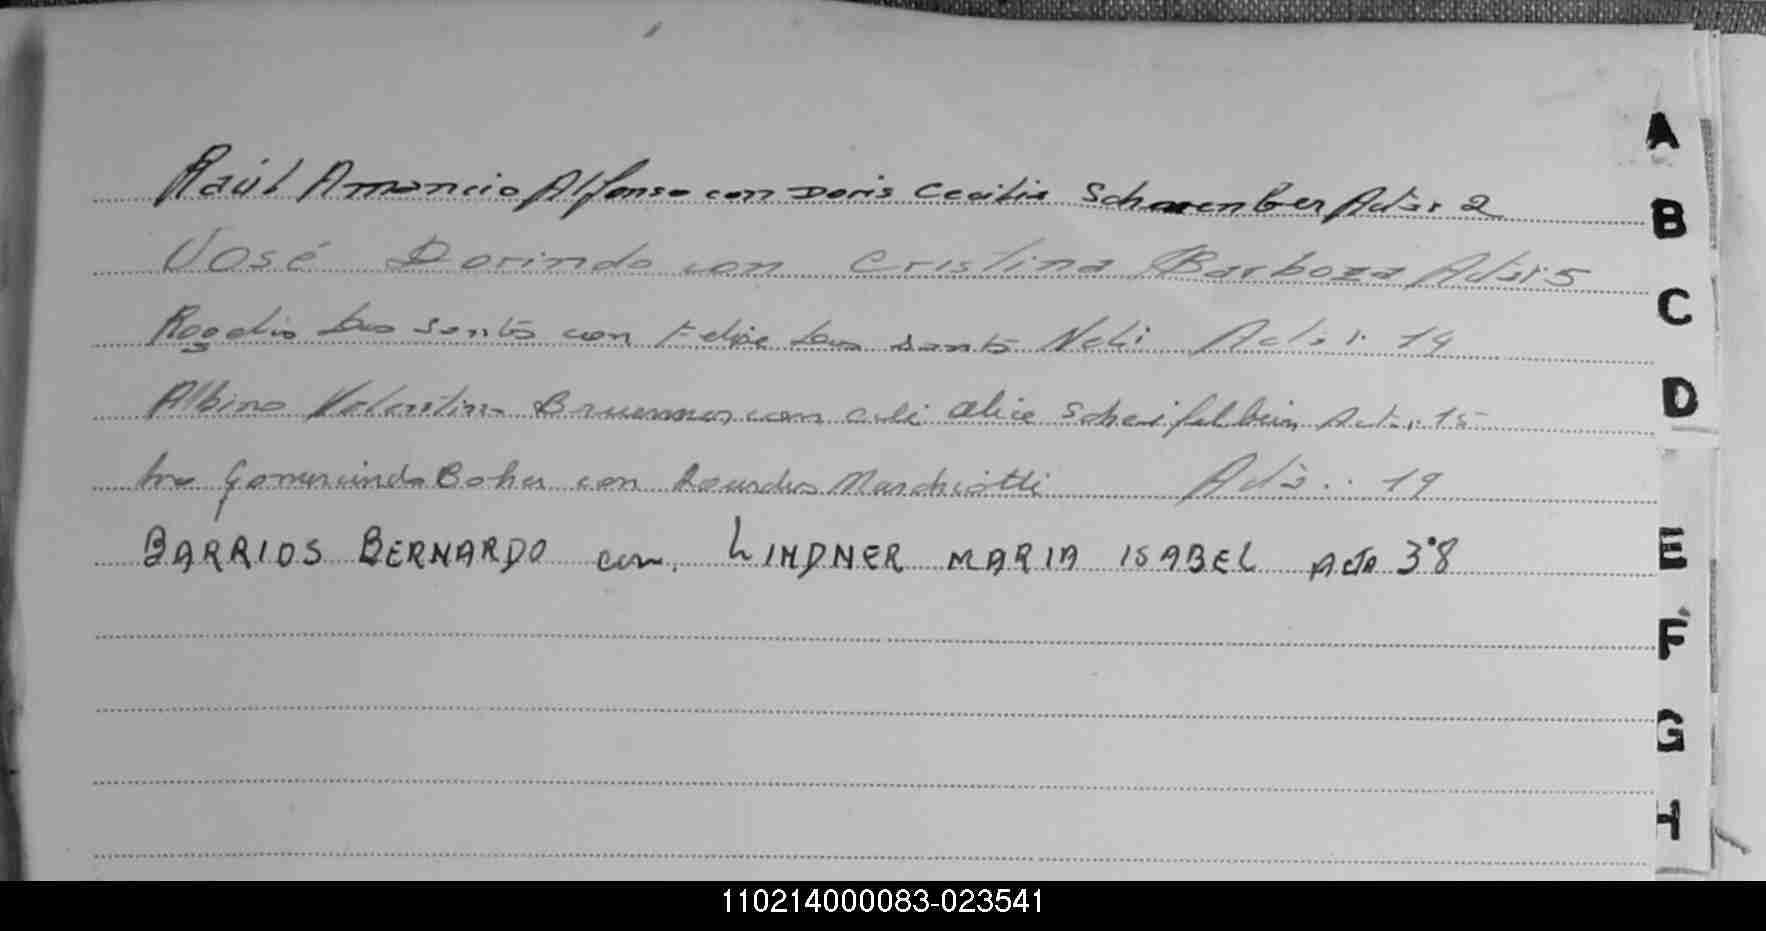 Raúl Amancio Alfonso con Doris Cecilia Acta: 2
José Dorindo con Cristina Barboza Acta: 5
Rogelio Dos Santos con Felipe Dos Santos Neli Acta: 14
Albino Valentin con Alice Scheifelbein Acta: 15
Gomercindo con Lourdes Marchiotti Acta: 19
BARRIOS BERNARDO con LINDNER MARIA ISABEL ACTA 38
A
B
C
D
E
F
G
H
110214000083-023541